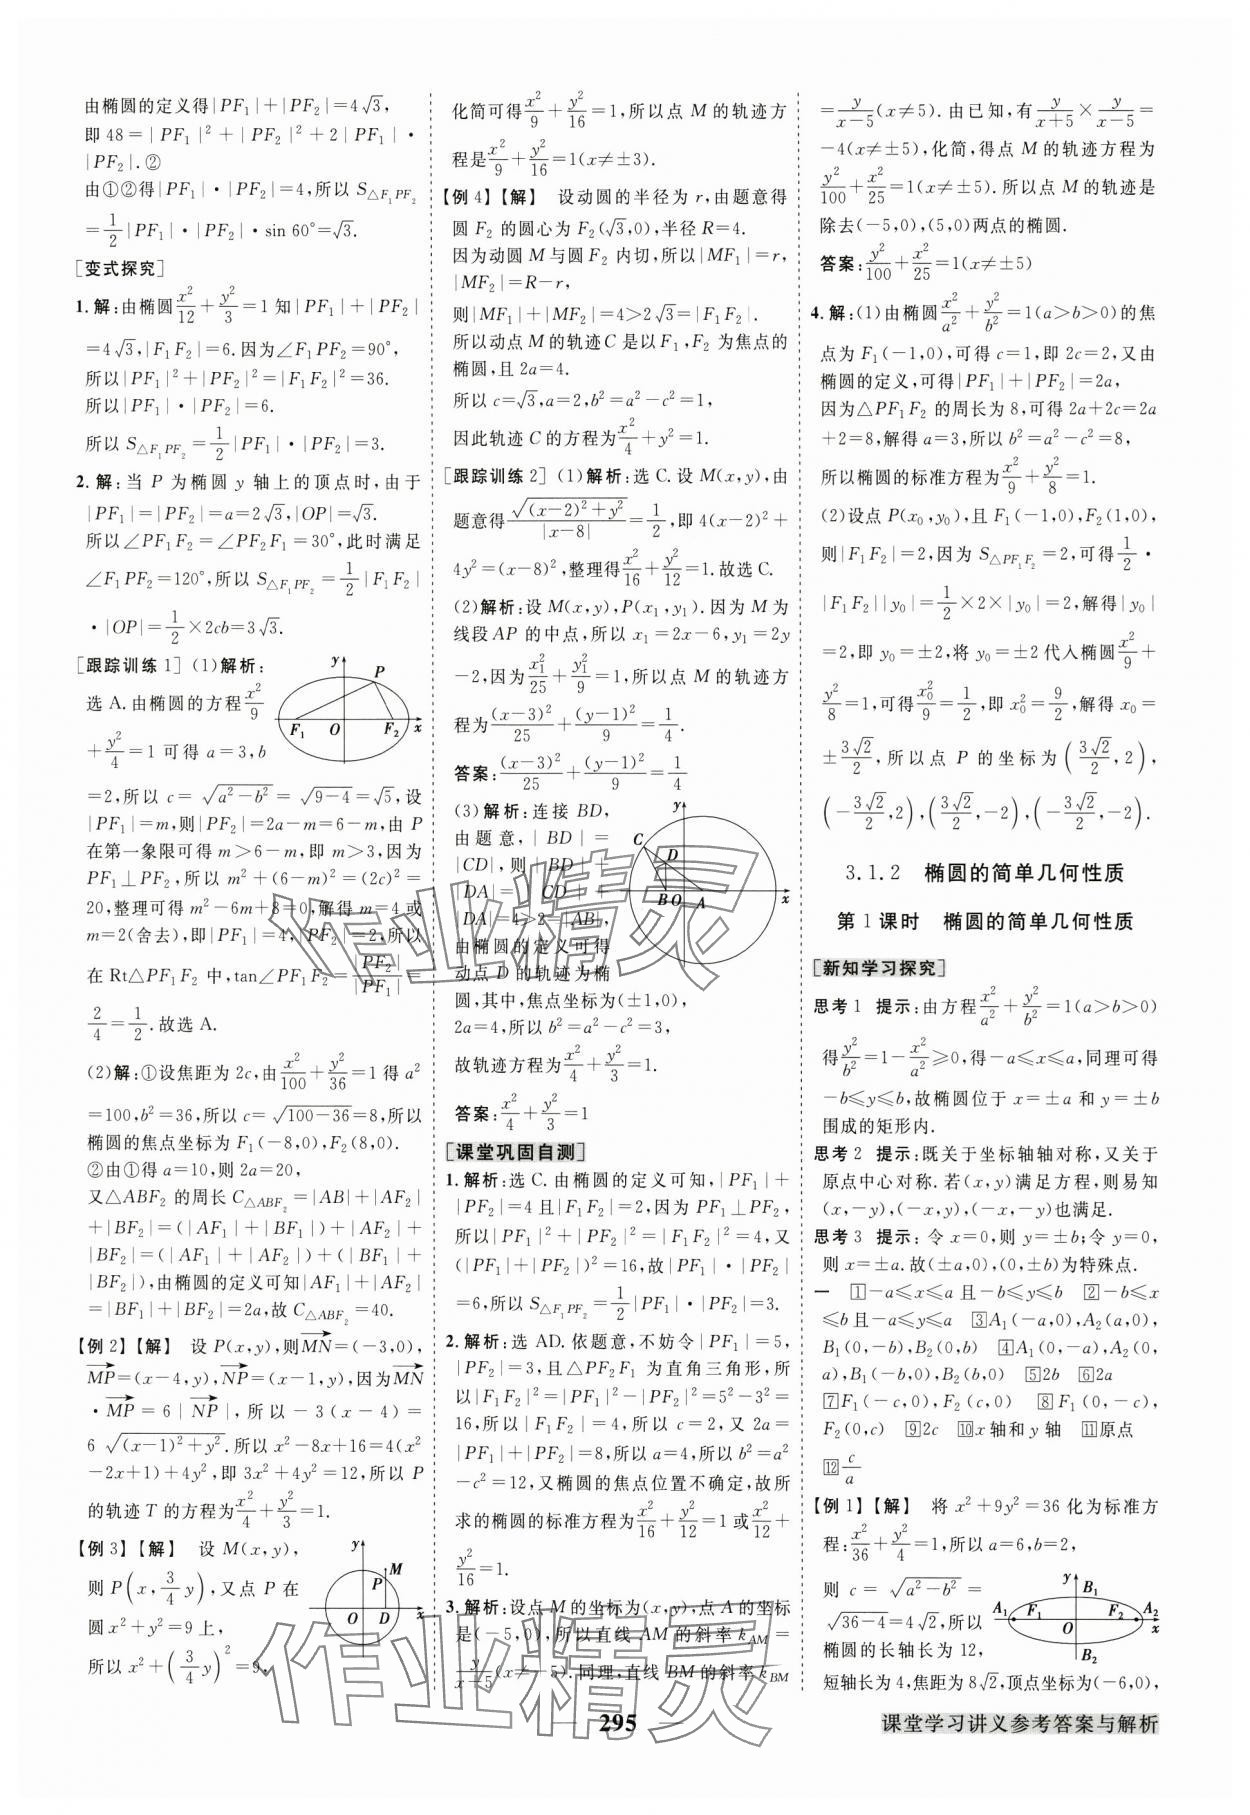 由椭圆的定义得|PF₁|+|PF₂|=4√3,
即 48=|PF₁|²+|PF₂|²+2|PF₁|·
|PF₂|.②
由①②得|PF₁|·|PF₂|=4,所以 S△F₁PF₂
=1/2|PF₁|·|PF₂|·sin 60°=√3.
[变式探究]
1.解:由椭圆x²/12+y²/3=1 知|PF₁|+|PF₂|
=4√3,|F₁F₂|=6.因为∠F₁PF₂=90°,
所以|PF₁|²+|PF₂|²=|F₁F₂|²=36.
所以|PF₁|·|PF₂|=6.
所以 S△F₁PF₂=1/2|PF₁|·|PF₂|=3.
2.解:当 P 为椭圆 y 轴上的顶点时,由于
|PF₁|=|PF₂|=a=2√3,|OP|=√3.
所以∠PF₁F₂=∠PF₂F₁=30°,此时满足
∠F₁PF₂=120°,所以 S△F₁PF₂=1/2|F₁F₂|
·|OP|=1/2×2cb=3√3.
[跟踪训练 1] (1)解析:
选 A.由椭圆的方程x²/9
+y²/4=1 可得 a=3,b
y P F₁ O F₂ x
=2,所以 c=√(a²-b²)=√(9-4)=√5,设
|PF₁|=m,则|PF₂|=2a-m=6-m,由 P
在第一象限可得 m>6-m,即 m>3,因为
PF₁⊥PF₂,所以 m²+(6-m)²=(2c)²=
20,整理可得 m²-6m+8=0,解得 m=4或
m=2(舍去),即|PF₁|=4,|PF₂|=2,所以
在 Rt△PF₁F₂ 中,tan∠PF₁F₂=|PF₂|/|PF₁|=
2/4=1/2.故选 A.
(2)解:①设焦距为 2c,由x²/100+y²/36=1得 a²
=100,b²=36,所以 c=√(100-36)=8,所以
椭圆的焦点坐标为 F₁(-8,0),F₂(8,0).
②由①得 a=10,则 2a=20,
又△ABF₂ 的周长 C△ABF₂=|AB|+|AF₂|
+|BF₂|=(|AF₁|+|BF₁|)+|AF₂|+
|BF₂|=(|AF₁|+|AF₂|)+(|BF₁|+
|BF₂|),由椭圆的定义可知|AF₁|+|AF₂|
=|BF₁|+|BF₂|=2a,故 C△ABF₂=40.
[例 2]【解】 设 P(x,y),则MN→=(-3,0),
MP→=(x-4,y),NP→=(x-1,y),因为MN→
·MP→=6|NP→|,所以-3(x-4)=
6√((x-1)²+y²).所以 x²-8x+16=4(x²
-2x+1)+4y²,即 3x²+4y²=12,所以 P
的轨迹 T 的方程为x²/4+y²/3=1.
[例 3]【解】 设 M(x,y),
则 P(x,3/4y),又点 P 在
圆 x²+y²=9 上,
所以 x²+(3/4y)²=9,
y M P O D x
化简可得x²/9+y²/16=1,所以点 M 的轨迹方
程是x²/9+y²/16=1(x≠±3).
[例 4]【解】 设动圆的半径为 r,由题意得
圆 F₂ 的圆心为 F₂(√3,0),半径 R=4.
因为动圆 M与圆 F₂ 内切,所以|MF₁|=r,
|MF₂|=R-r,
则|MF₁|+|MF₂|=4>2√3=|F₁F₂|.
所以动点 M 的轨迹C 是以 F₁,F₂ 为焦点的
椭圆,且 2a=4.
所以 c=√3,a=2,b²=a²-c²=1,
因此轨迹 C 的方程为x²/4+y²=1.
[跟踪训练 2] (1)解析:选 C.设 M(x,y),由
题意得√((x-2)²+y²)/|x-8|=1/2,即 4(x-2)²+
4y²=(x-8)²,整理得x²/16+y²/12=1.故选 C.
(2)解析:设 M(x,y),P(x₁,y₁).因为 M 为
线段 AP 的中点,所以 x₁=2x-6,y₁=2y
-2,因为x₁²/25+y₁²/9=1,所以点 M 的轨迹方
程为(x-3)²/25+(y-1)²/9=1/4.
答案:(x-3)²/25+(y-1)²/9=1/4
(3)解析:连接 BD,
由题意,|BD|=
|CD|,则|BD|+
|DA|=|CD|+
|DA|=4>2=|AB|,
由椭圆的定义可得
动点 D 的轨迹为椭
y C D B O A x
圆,其中,焦点坐标为(±1,0),
2a=4,所以 b²=a²-c²=3,
故轨迹方程为x²/4+y²/3=1.
答案:x²/4+y²/3=1
[课堂巩固自测]
1.解析:选 C.由椭圆的定义可知,|PF₁|+
|PF₂|=4 且|F₁F₂|=2,因为 PF₁⊥PF₂,
所以|PF₁|²+|PF₂|²=|F₁F₂|²=4,又
(|PF₁|+|PF₂|)²=16,故|PF₁|·|PF₂|
=6,所以 S△F₁PF₂=1/2|PF₁|·|PF₂|=3.
2.解析:选 AD.依题意,不妨令|PF₁|=5,
|PF₂|=3,且△PF₂F₁ 为直角三角形,所
以|F₁F₂|²=|PF₁|²-|PF₂|²=5²-3²=
16,所以|F₁F₂|=4,所以 c=2,又 2a=
|PF₁|+|PF₂|=8,所以 a=4,所以 b²=a²
-c²=12,又椭圆的焦点位置不确定,故所
求的椭圆的标准方程为x²/16+y²/12=1 或x²/12+
y²/16=1.
3.解析:设点 M 的坐标为(x,y),点 A 的坐标
是(-5,0),所以直线 AM 的斜率 kAM=
y/(x+5)(x≠-5).同理,直线 BM 的斜率 kBM
=y/(x-5)(x≠5).由已知,有y/(x+5)×y/(x-5)=
-4(x≠±5),化简,得点 M 的轨迹方程为
y²/100+x²/25=1(x≠±5).所以点 M 的轨迹是
除去(-5,0),(5,0)两点的椭圆.
答案:y²/100+x²/25=1(x≠±5)
4.解:(1)由椭圆x²/a²+y²/b²=1(a>b>0)的焦
点为 F₁(-1,0),可得 c=1,即 2c=2,又由
椭圆的定义,可得|PF₁|+|PF₂|=2a,
因为△PF₁F₂ 的周长为 8,可得 2a+2c=2a
+2=8,解得 a=3,所以 b²=a²-c²=8,
所以椭圆的标准方程为x²/9+y²/8=1.
(2)设点 P(x₀,y₀),且 F₁(-1,0),F₂(1,0),
则|F₁F₂|=2,因为 S△PF₁F₂=2,可得1/2·
|F₁F₂||y₀|=1/2×2×|y₀|=2,解得|y₀|
=2,即 y₀=±2,将 y₀=±2代入椭圆x²/9+
y²/8=1,可得x₀²/9=1/2,即 x₀²=9/2,解得 x₀=
±3√2/2,所以点 P 的坐标为(3√2/2,2),
(-3√2/2,2),(3√2/2,-2),(-3√2/2,-2).
3.1.2 椭圆的简单几何性质
第 1 课时 椭圆的简单几何性质
[新知学习探究]
思考 1 提示:由方程x²/a²+y²/b²=1(a>b>0)
得y²/b²=1-x²/a²≥0,得-a≤x≤a,同理可得
-b≤y≤b,故椭圆位于 x=±a 和 y=±b
围成的矩形内.
思考 2 提示:既关于坐标轴轴对称,又关于
原点中心对称.若(x,y)满足方程,则易知
(x,-y),(-x,y),(-x,-y)也满足.
思考 3 提示:令 x=0,则 y=±b;令 y=0,
则 x=±a.故(±a,0),(0,±b)为特殊点.
一 1-a≤x≤a 且-b≤y≤b 2-b≤x
≤b 且-a≤y≤a 3A₁(-a,0),A₂(a,0),
B₁(0,-b),B₂(0,b) 4A₁(0,-a),A₂(0,
a),B₁(-b,0),B₂(b,0) 52b 62a
7F₁(-c,0),F₂(c,0) 8F₁(0,-c),
F₂(0,c) 92c 10x 轴和 y 轴 11原点
12c/a
[例 1]【解】 将 x²+9y²=36 化为标准方
程:x²/36+y²/4=1,所以 a=6,b=2,
则 c=√(a²-b²)=
√(36-4)=4√2,所以
椭圆的长轴长为 12,
y B₁ A₁ F₁ O F₂ A₂ x B₂
短轴长为 4,焦距为 8√2,顶点坐标为(-6,0),
295
课堂学习讲义参考答案与解析
作业精灵
作业精灵